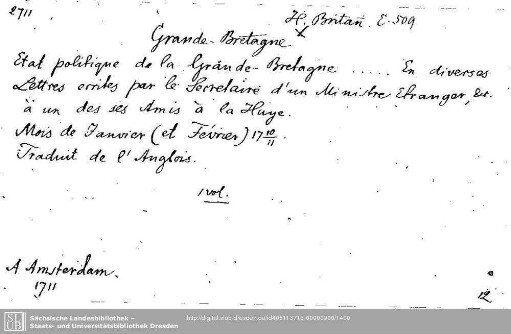 2711
H. Britan. E. 509
Grande-Bretagne
Etat politique de la Grande-Bretagne ..... En diverses
Lettres ecrites par le Secretaire d'un Ministre Etranger, &c.
à un des ses Amis à la Haye.
Mois de Janvier (et Fevrier) 17 10/11.
Traduit de l'Anglois.
1 vol.
A Amsterdam.
1711
12
Sächsische Landesbibliothek –
Staats- und Universitätsbibliothek Dresden